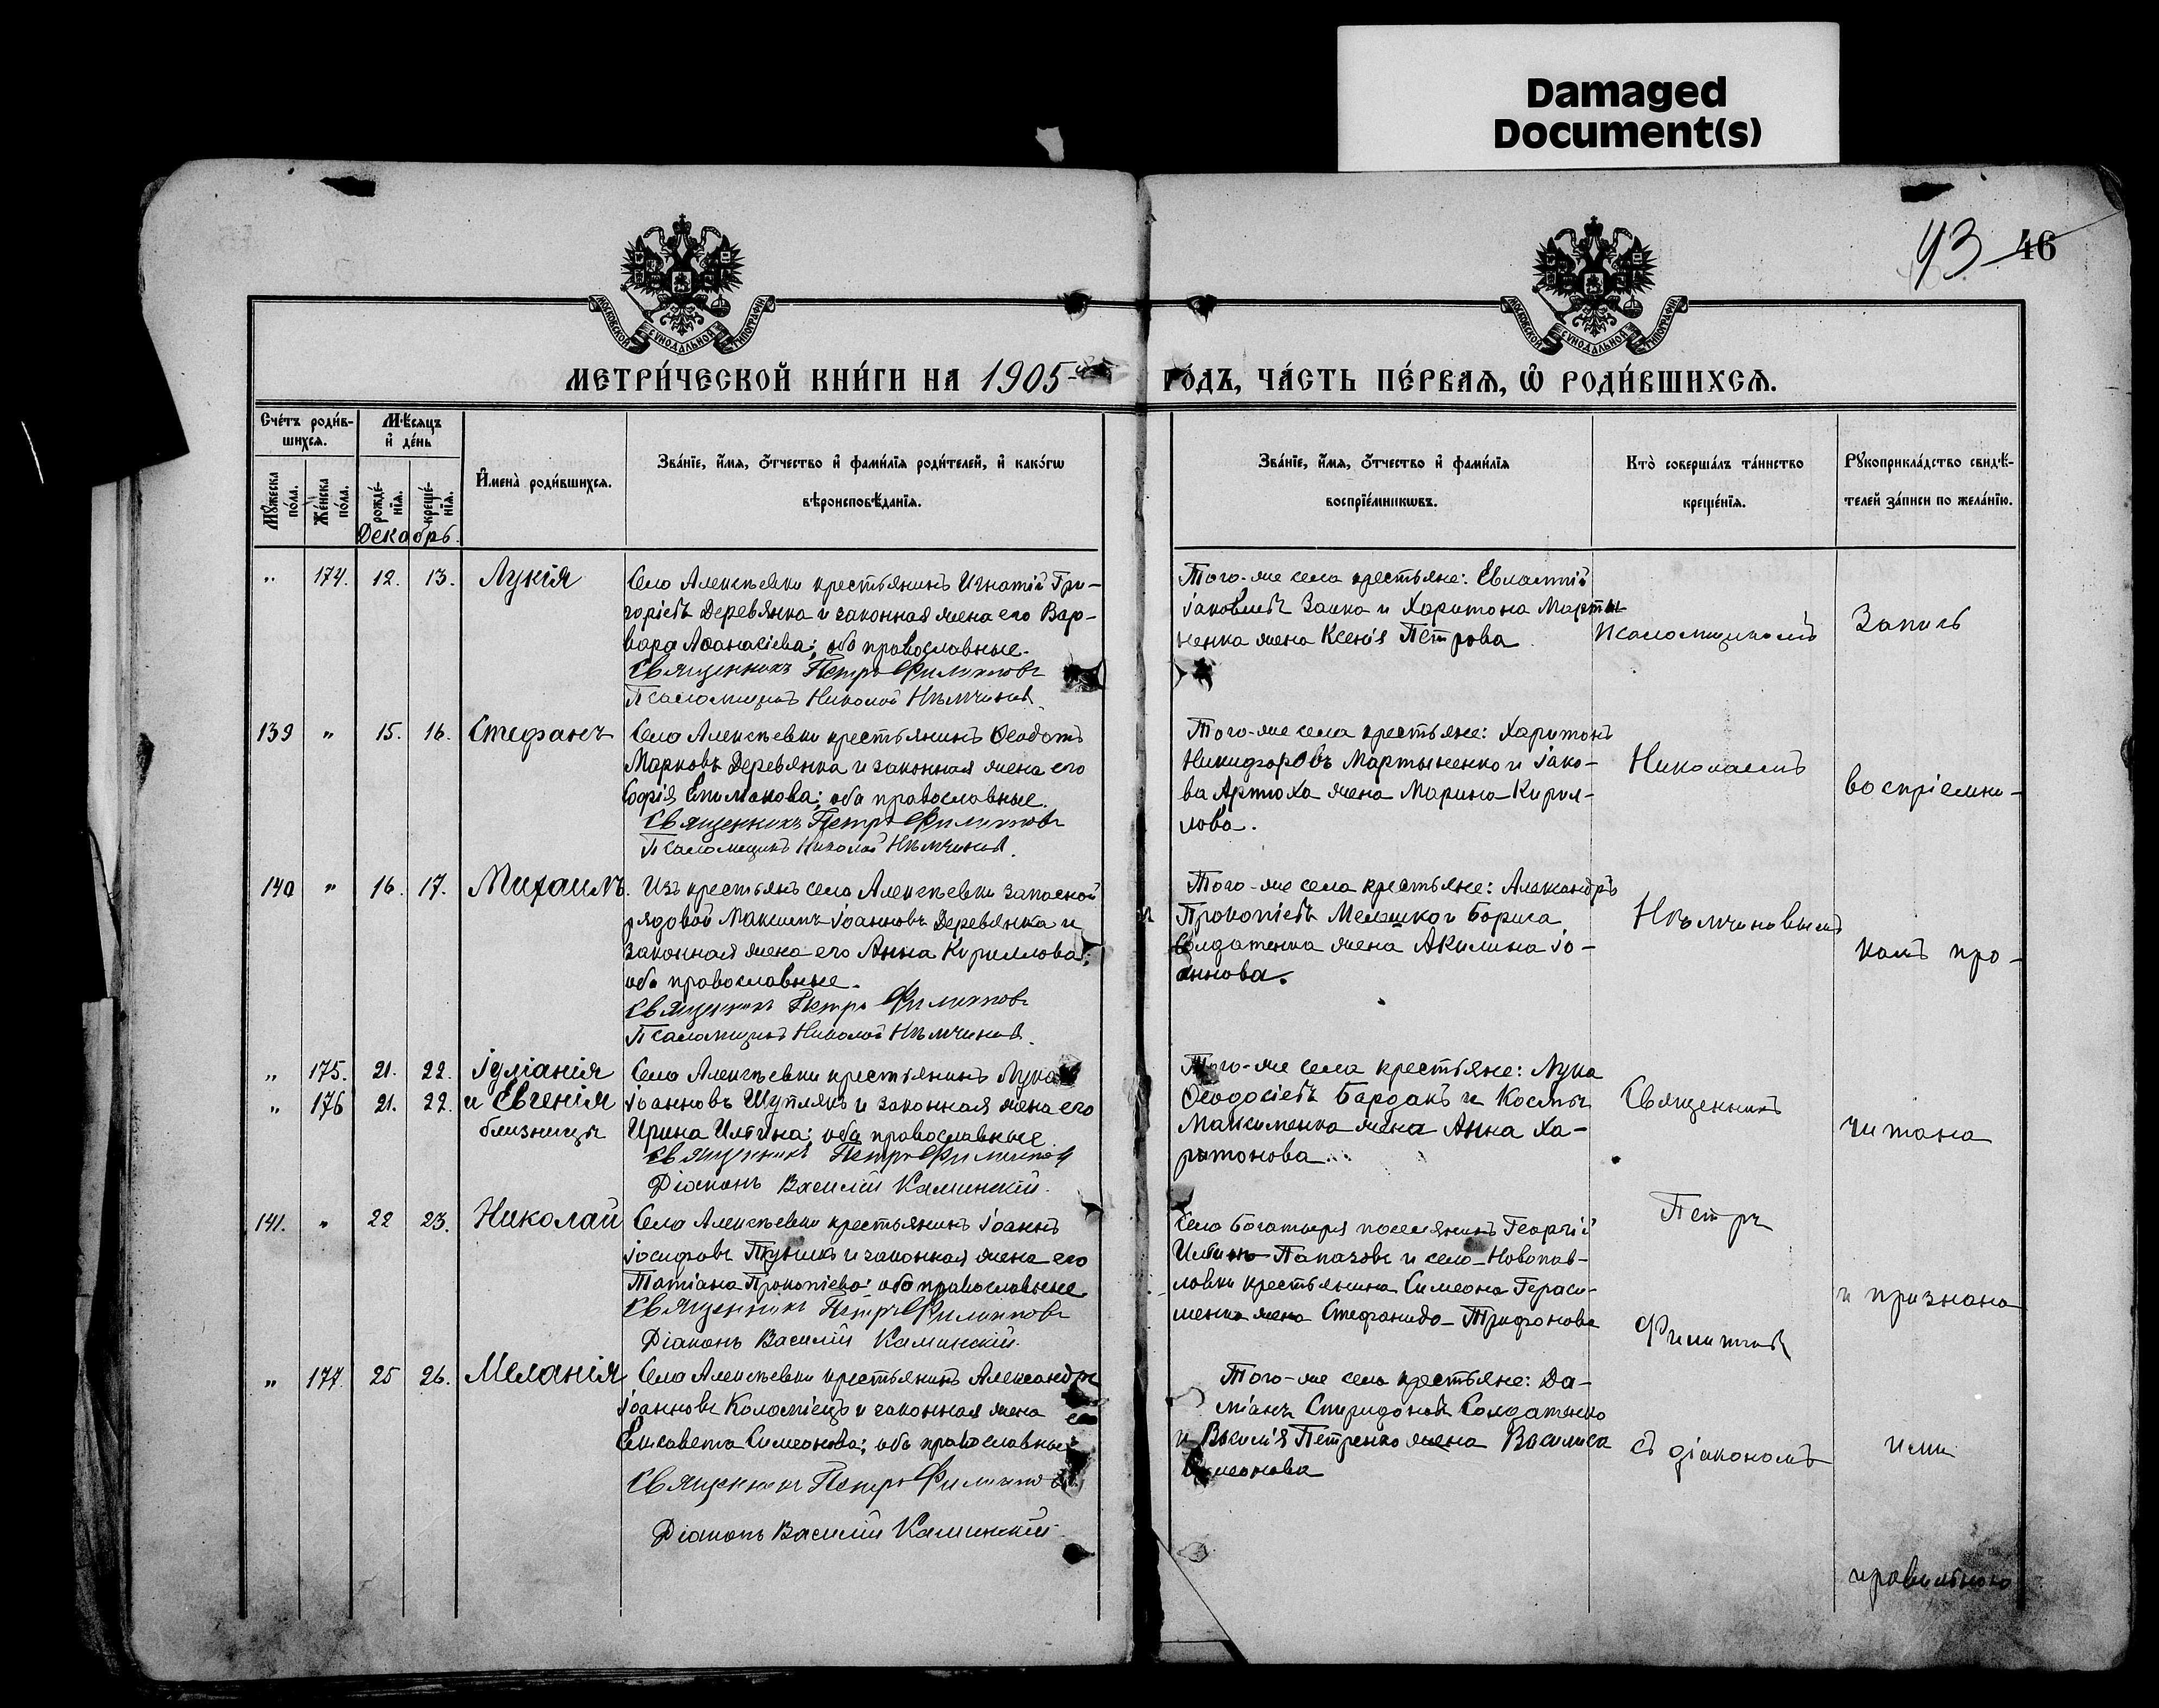 Damaged
Document(s)
93 46
МОСКОВСКОЙ СѴНОДАЛЬНОЙ ТИПОГРАФІИ
МОСКОВСКОЙ СѴНОДАЛЬНОЙ ТИПОГРАФІИ
МЕТРИ́ЧЕСКОЙ КНИ́ГИ НА 1905
ГО́ДЪ, ЧА́СТЬ ПЕ́РВАЯ, Ѽ РОДИ́ВШИХСЯ.
Сче́тъ роди́в-
шихся.
Мѣ́сяцъ
и҆ де́нь
Мꙋ́жеска
по́ла.
Же́нска
по́ла.
рожде́-
нїя.
креще́-
нїя.
И҆мена̀ роди́вшихся.
Зва́нїе, и҆́мя, ѻ҆́тчество и҆ фами́лїя роди́телей, и҆ како́гѡ
вѣроисповѣ́данїя.
Зва́нїе, и҆́мя, ѻ҆́тчество и҆ фами́лїя
воспрїе́мникѡвъ.
Кто̀ соверша́лъ та́инство
креще́нїя.
Рꙋкоприкла́дство свидѣ́-
телей за́писи по жела́нїю.
Декабрь.
" 174. 12. 13. Лукія
Села Алексѣевки крестьянинъ Игнатій Гри-
горіевъ Деревянка и законная жена его Вар-
вара Аѳанасіева; оба православные.
Священникъ Петръ Филиповъ
Псаломщикъ Николай Нѣмчиновъ.
Того-же села крестьяне: Евлампій
Іаковлевъ Заика и Харитона Марты-
ненка жена Ксенія Петрова.
Псаломщикомъ
Запись
139 " 15. 16. Стефанъ
Села Алексѣевки крестьянинъ Ѳеодотъ
Марковъ Деревянка и законная жена его
Софія Епимахова; оба православные.
Священникъ Петръ Филиповъ
Псаломщикъ Николай Нѣмчиновъ.
Того-же села крестьяне: Харитонъ
Никифоровъ Мартыненко и Іако-
ва Артюха жена Марина Кирил-
лова.
Николаемъ
воспріемни-
140 " 16. 17. Михаилъ
Изъ крестьянъ села Алексѣевки запасной
рядовой Максимъ Іоанновъ Деревянка и
законная жена его Анна Кириллова;
оба православные.
Священникъ Петръ Филиповъ
Псаломщикъ Николай Нѣмчиновъ.
Того-же села крестьяне: Александръ
Прокопіевъ Мелашко и Бориса
Солдатенка жена Акилина Іо-
аннова.
Нѣмчиновымъ
камъ про-
" 175. 21. 22. Іуліанія
" 176 21. 22. и Евгенія
близнецы
Села Алексѣевки крестьянинъ Лука
Іоанновъ Шуплякъ и законная жена его
Ирина Ильина; оба православные.
Священникъ Петръ Филиповъ
Діаконъ Василій Каминскій.
Того-же села крестьяне: Лука
Ѳеодосіевъ Бардакъ и Космы
Максименка жена Анна Ха-
ритонова.
Священникъ
читана
141. " 22 23. Николай
Села Алексѣевки крестьянинъ Іоаннъ
Іосифовъ и законная жена его
Татіана Прокопіева; оба православные
Священникъ Петръ Филиповъ
Діаконъ Василій Каминскій.
Села Богатыря поселянинъ Георгій
Ильинъ Папазовъ и села Новопав-
ловки крестьянина Симеона Гераси-
менка жена Стефанида Трифонова
Петръ
Филиповъ
и признана
" 177. 25 26. Меланія
Села Алексѣевки крестьянинъ Александръ
Іоанновъ Коломіецъ и законная жена его
Елисавета Симеонова; оба православные
Священникъ Петръ Филиповъ
Діаконъ Василій Каминскій.
Того-же села крестьяне: Да-
міанъ Спиридоновъ Солдатенко
и Василія Петренко жена Василиса
Симеонова
съ діакономъ
ими
правильною